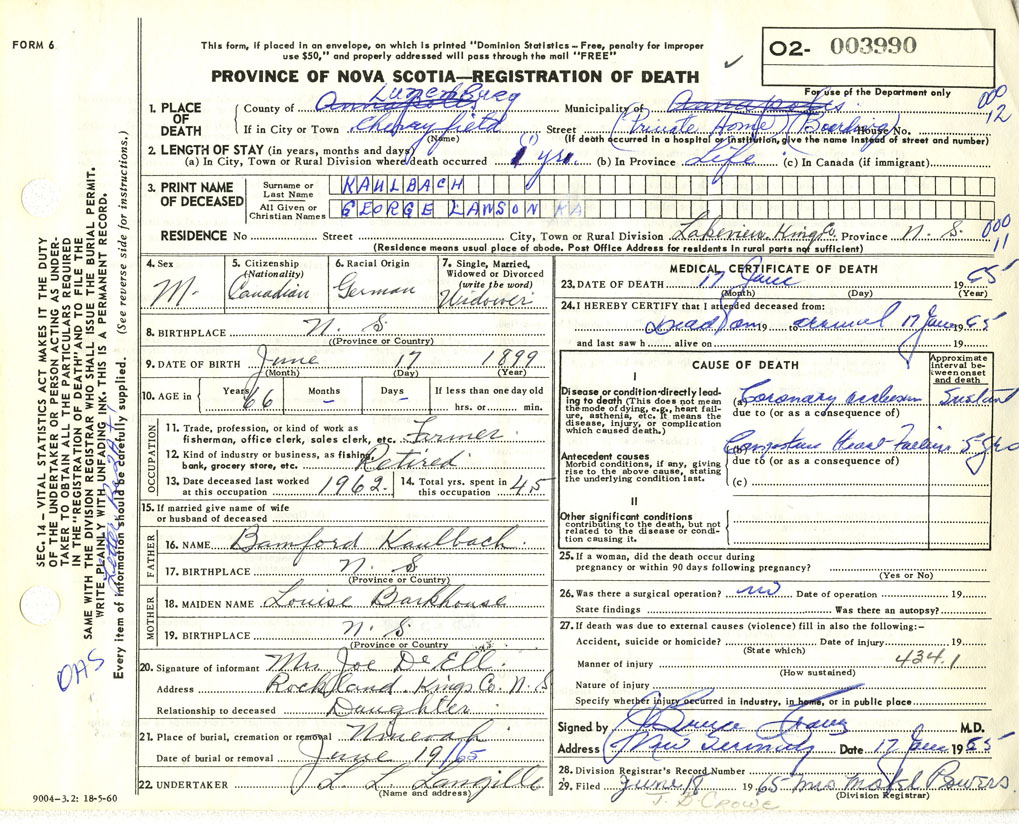 FORM 6
This form, if placed in an envelope, on which is printed "Dominion Statistics – Free, penalty for improper
use $50," and properly addressed will pass through the mail "FREE"
PROVINCE OF NOVA SCOTIA—REGISTRATION OF DEATH
O2- 003990
For use of the Department only
000
12
1. PLACE OF DEATH
County of Annapolis Lunenburg Municipality of Annapolis
If in City or Town Cherryfield Street (Private Home) (Boarding) House No.
(Name) (If death occurred in a hospital or institution, give the name instead of street and number)
2. LENGTH OF STAY (in years, months and days) (1)
(a) In City, Town or Rural Division where death occurred 1 yr. (b) In Province Life (c) In Canada (if immigrant)
3. PRINT NAME OF DECEASED
Surname or Last Name KAULBACH
All Given or Christian Names GEORGE LAWSON KA
RESIDENCE No Street City, Town or Rural Division Lakeview Kings Co. Province N. S.
000
11
(Residence means usual place of abode. Post Office Address for residents in rural parts not sufficient)
4. Sex M.
5. Citizenship (Nationality) Canadian
6. Racial Origin German
7. Single, Married, Widowed or Divorced (write the word) Widower
8. BIRTHPLACE N. S.
(Province or Country)
9. DATE OF BIRTH June 17 1899
(Month) (Day) (Year)
10. AGE in Years 66 Months – Days – If less than one day old hrs. or min.
OCCUPATION
11. Trade, profession, or kind of work as fisherman, office clerk, sales clerk, etc. Farmer
12. Kind of industry or business, as fishing, bank, grocery store, etc. Retired
13. Date deceased last worked at this occupation 1962. 14. Total yrs. spent in this occupation 45
15. If married give name of wife or husband of deceased
FATHER
16. NAME Bamford Kaulbach.
17. BIRTHPLACE N. S
(Province or Country)
MOTHER
18. MAIDEN NAME Louise Barkhouse
19. BIRTHPLACE N. S
(Province or Country)
20. Signature of informant Mrs Joe De Ell
Address Rockland Kings Co. N. S
Relationship to deceased Daughter
21. Place of burial, cremation or removal Nineveh
Date of burial or removal June 19/65
22. UNDERTAKER L. L. Langille
(Name and address)
9004-3.2: 18-5-60
MEDICAL CERTIFICATE OF DEATH
23. DATE OF DEATH 17 June 1965
(Month) (Day) (Year)
24. I HEREBY CERTIFY that I attended deceased from:
Dead on 19 arrival 17 June 1965
and last saw h alive on 19
CAUSE OF DEATH
Approximate interval between onset and death
I
Disease or condition directly leading to death (This does not mean the mode of dying, e.g., heart failure, asthenia, etc. It means the disease, injury, or complication which caused death.)
(a) Coronary Instant
due to (or as a consequence of)
Antecedent causes
Morbid conditions, if any, giving rise to the above cause, stating the underlying condition last.
(b) Congestive Heart Failure 5 yrs
due to (or as a consequence of)
(c)
II
Other significant conditions
contributing to the death, but not related to the disease or condition causing it.
25. If a woman, did the death occur during pregnancy or within 90 days following pregnancy?
(Yes or No)
26. Was there a surgical operation? no Date of operation 19
State findings Was there an autopsy?
27. If death was due to external causes (violence) fill in also the following:–
Accident, suicide or homicide? Date of injury 19
(State which)
Manner of injury 434.1
(How sustained)
Nature of injury
Specify whether injury occurred in industry, in home, or in public place
Signed by Bruce M.D.
Address New Germany Date 17 June 1965
28. Division Registrar's Record Number
29. Filed June 18 1965 Mrs Mabel Bowers
J. D. CROWE (Division Registrar)
SEC. 14 – VITAL STATISTICS ACT MAKES IT THE DUTY
OF THE UNDERTAKER OR PERSON ACTING AS UNDER-
TAKER TO OBTAIN ALL THE PARTICULARS REQUIRED
IN THE "REGISTRATION OF DEATH" AND TO FILE THE
SAME WITH THE DIVISION REGISTRAR WHO SHALL ISSUE THE BURIAL PERMIT.
WRITE PLAINLY WITH UNFADING INK. THIS IS A PERMANENT RECORD.
Every item of information should be carefully supplied. (See reverse side for instructions.)
OAS